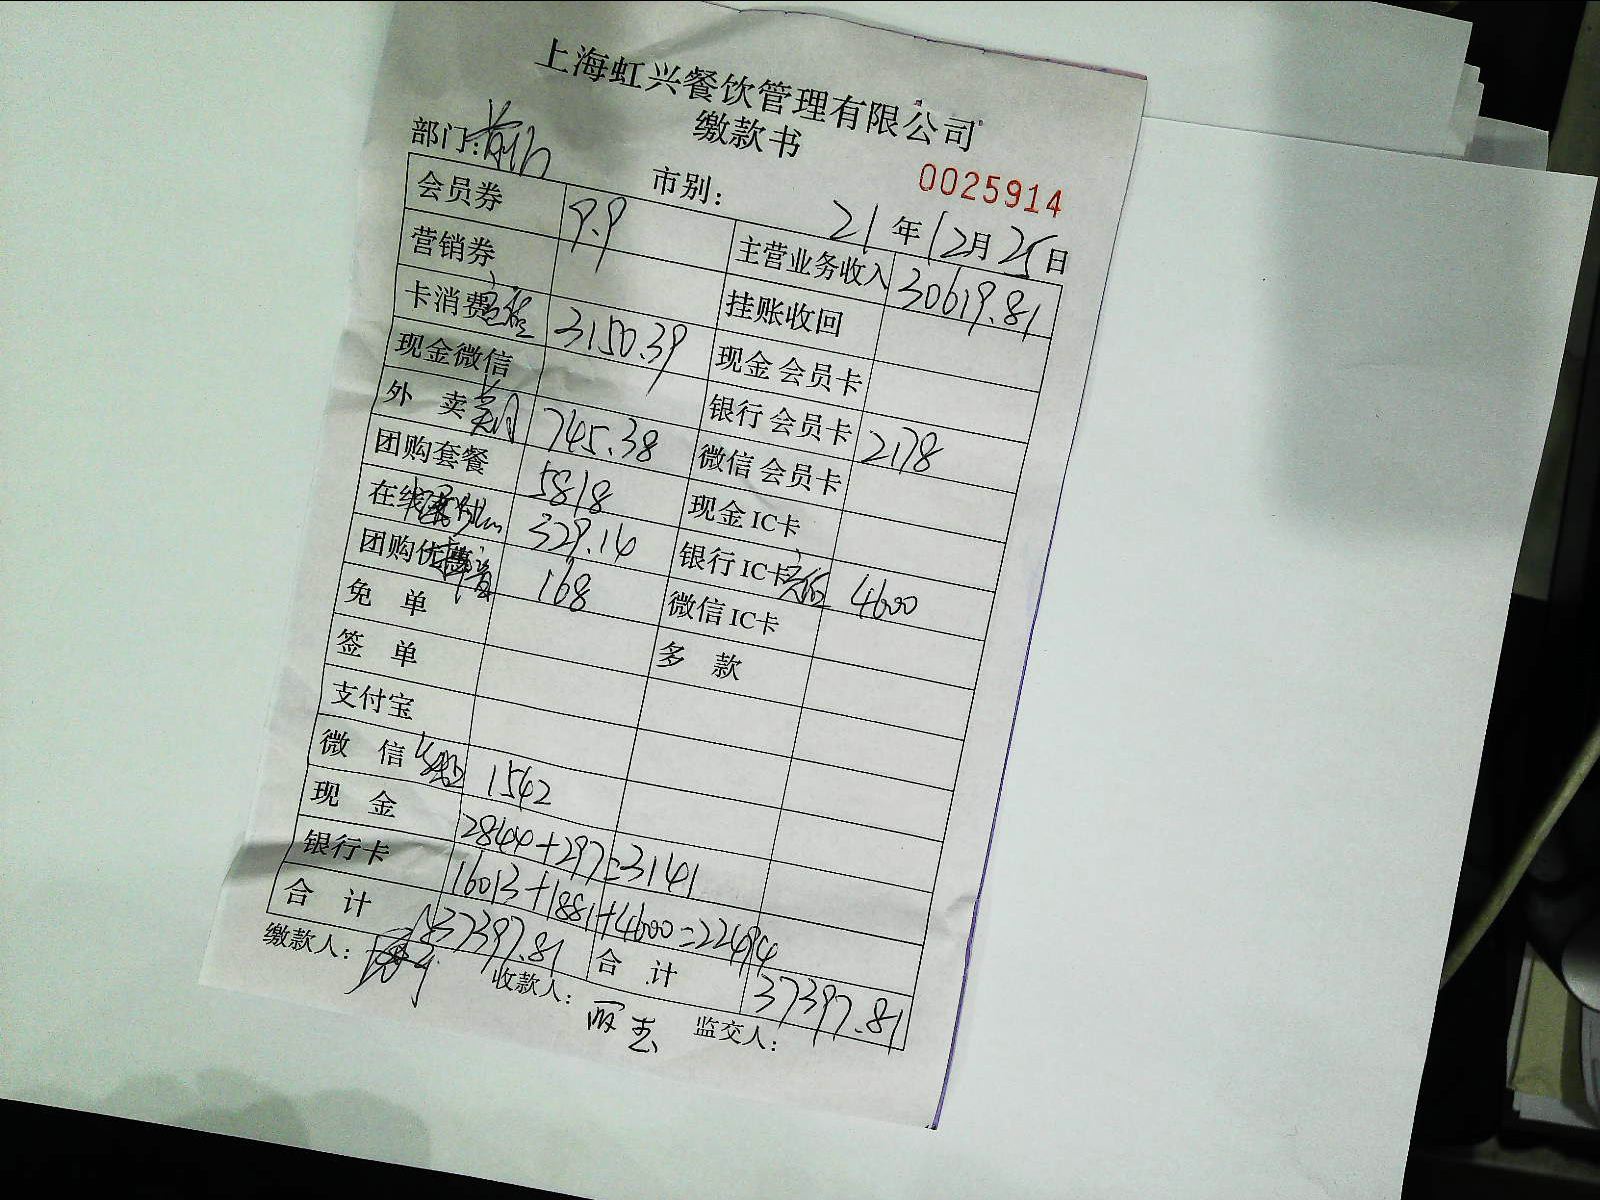 上海虹兴餐饮管理有限公司
缴款书
部门:
市别:
0025914
21年12月25日
会员券 9.9 主营业务收入 30619.81
营销券 挂账收回
卡消费 3150.39 现金会员卡
现金微信 银行会员卡 2178
外卖 745.38 微信会员卡
团购套餐 5818 现金IC卡
在线 329.14 银行IC卡 4600
团购优 168 微信IC卡
免单 多款
签单
支付宝
微信 1542
现金 2844+297=3141
银行卡 16013+1881+4600=22494
合计 37397.81 合计 37397.81
缴款人: 收款人: 监交人: